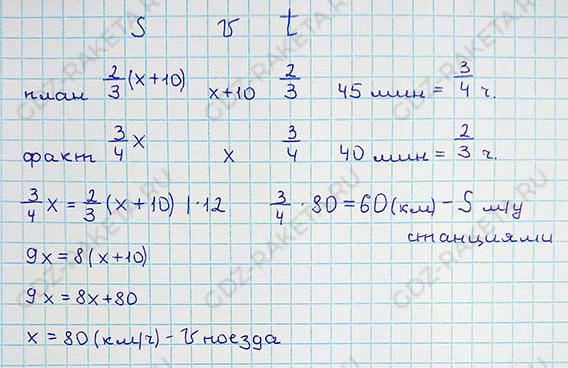 S v t
план 2/3 (x+10) x+10 2/3 45 мин = 3/4 ч.
факт 3/4 x x 3/4 40 мин = 2/3 ч.
3/4 x = 2/3 (x+10) | · 12 3/4 · 80 = 60 (км) - S м/у
станциями
9x = 8(x+10)
9x = 8x+80
x = 80 (км/ч) - v поезда
GDZ-RAKETA.RU